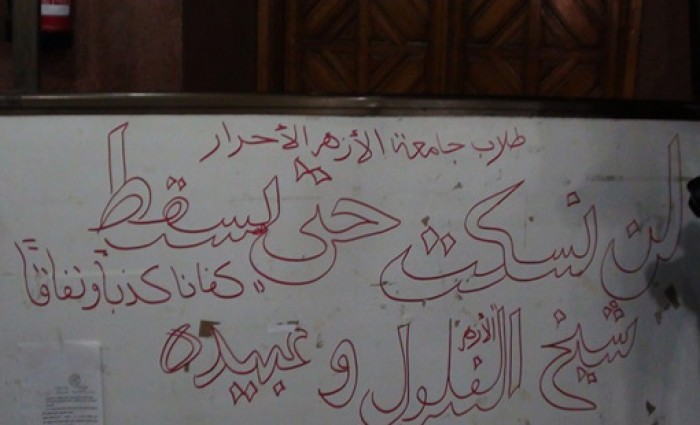 طلاب جامعة الأزهر الأحرار
لن نسكت حتى يسقط
"كفانا كذباً ونفاقاً
شيخ الفلول وعبيده
"الأزهر"